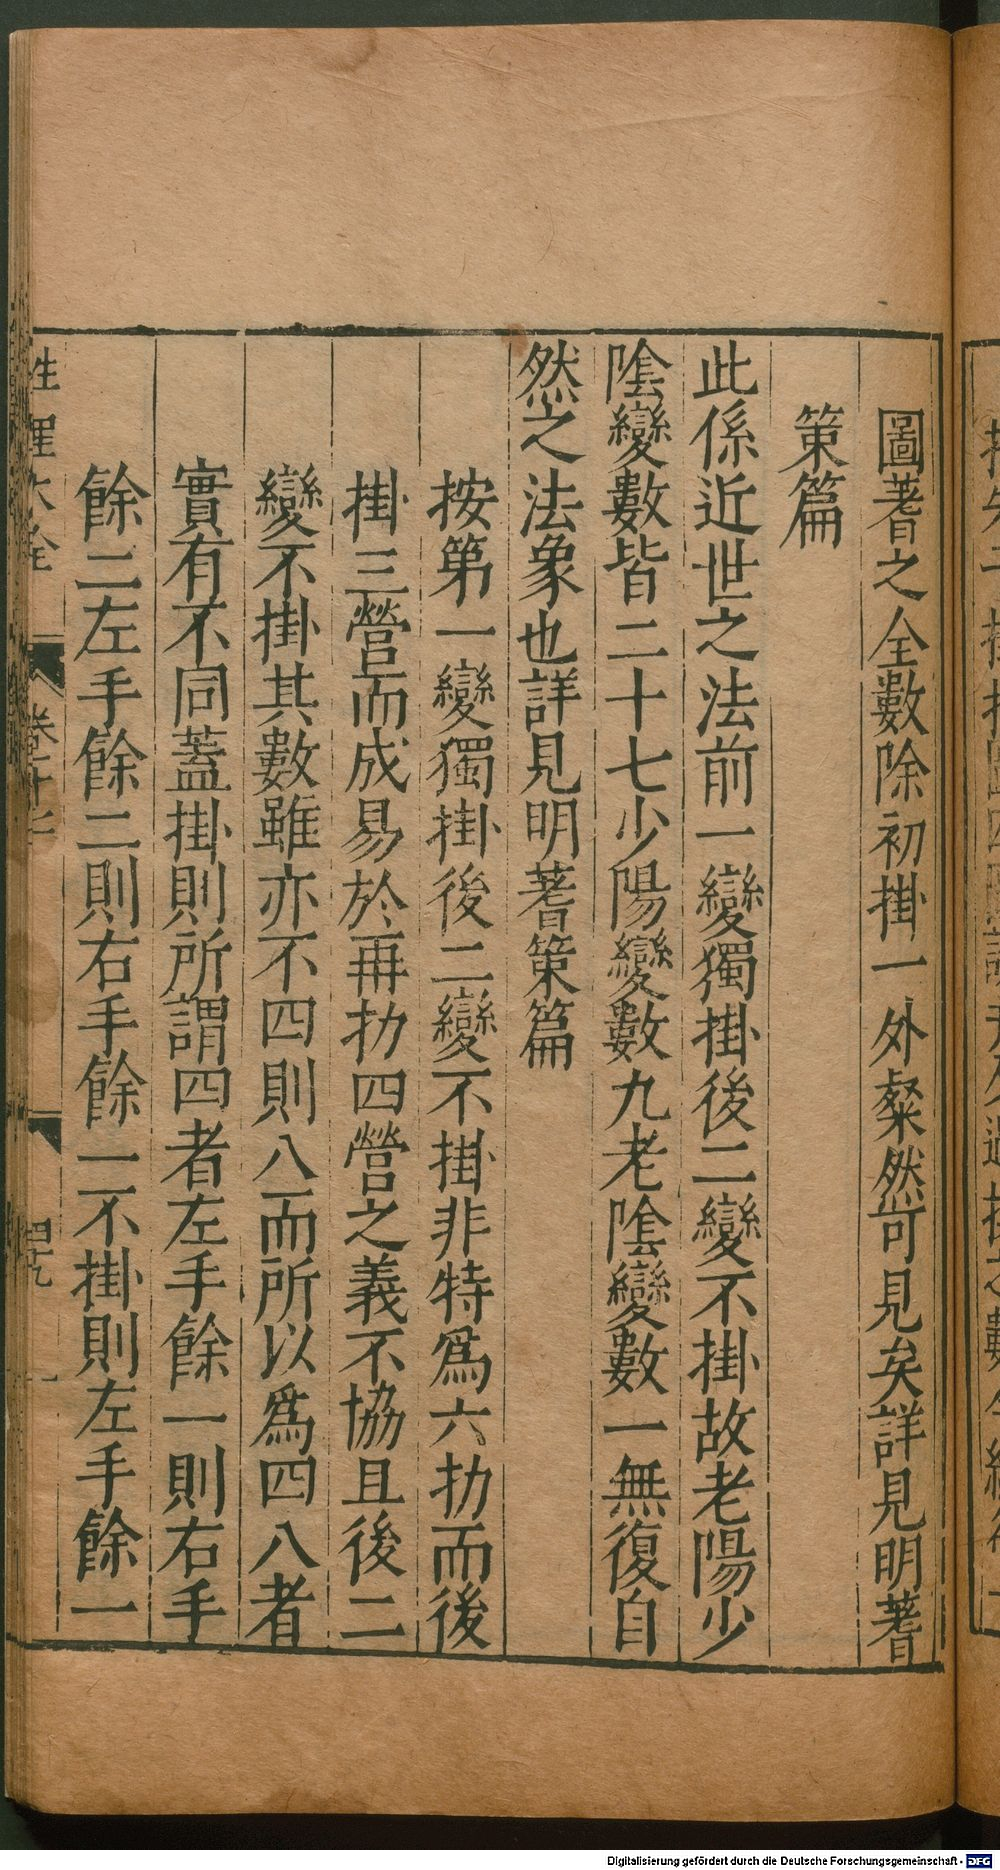 圖蓍之全數除初掛一外粲然可見矣詳見明蓍
策篇
此係近世之法前一變獨掛後二變不掛故老陽少
陰變數皆二十七少陽變數九老陰變數一無復自
然之法象也詳見明蓍策篇
按第一變獨掛後二變不掛非特爲六扐而後
掛三營而成易於再扐四營之義不協且後二
變不掛其數雖亦不四則八而所以爲四八者
實有不同蓋掛則所謂四者左手餘一則右手
餘二左手餘二則右手餘一不掛則左手餘一
性理大全
卷十七
四十九
Digitalisierung gefördert durch die Deutsche Forschungsgemeinschaft - DFG